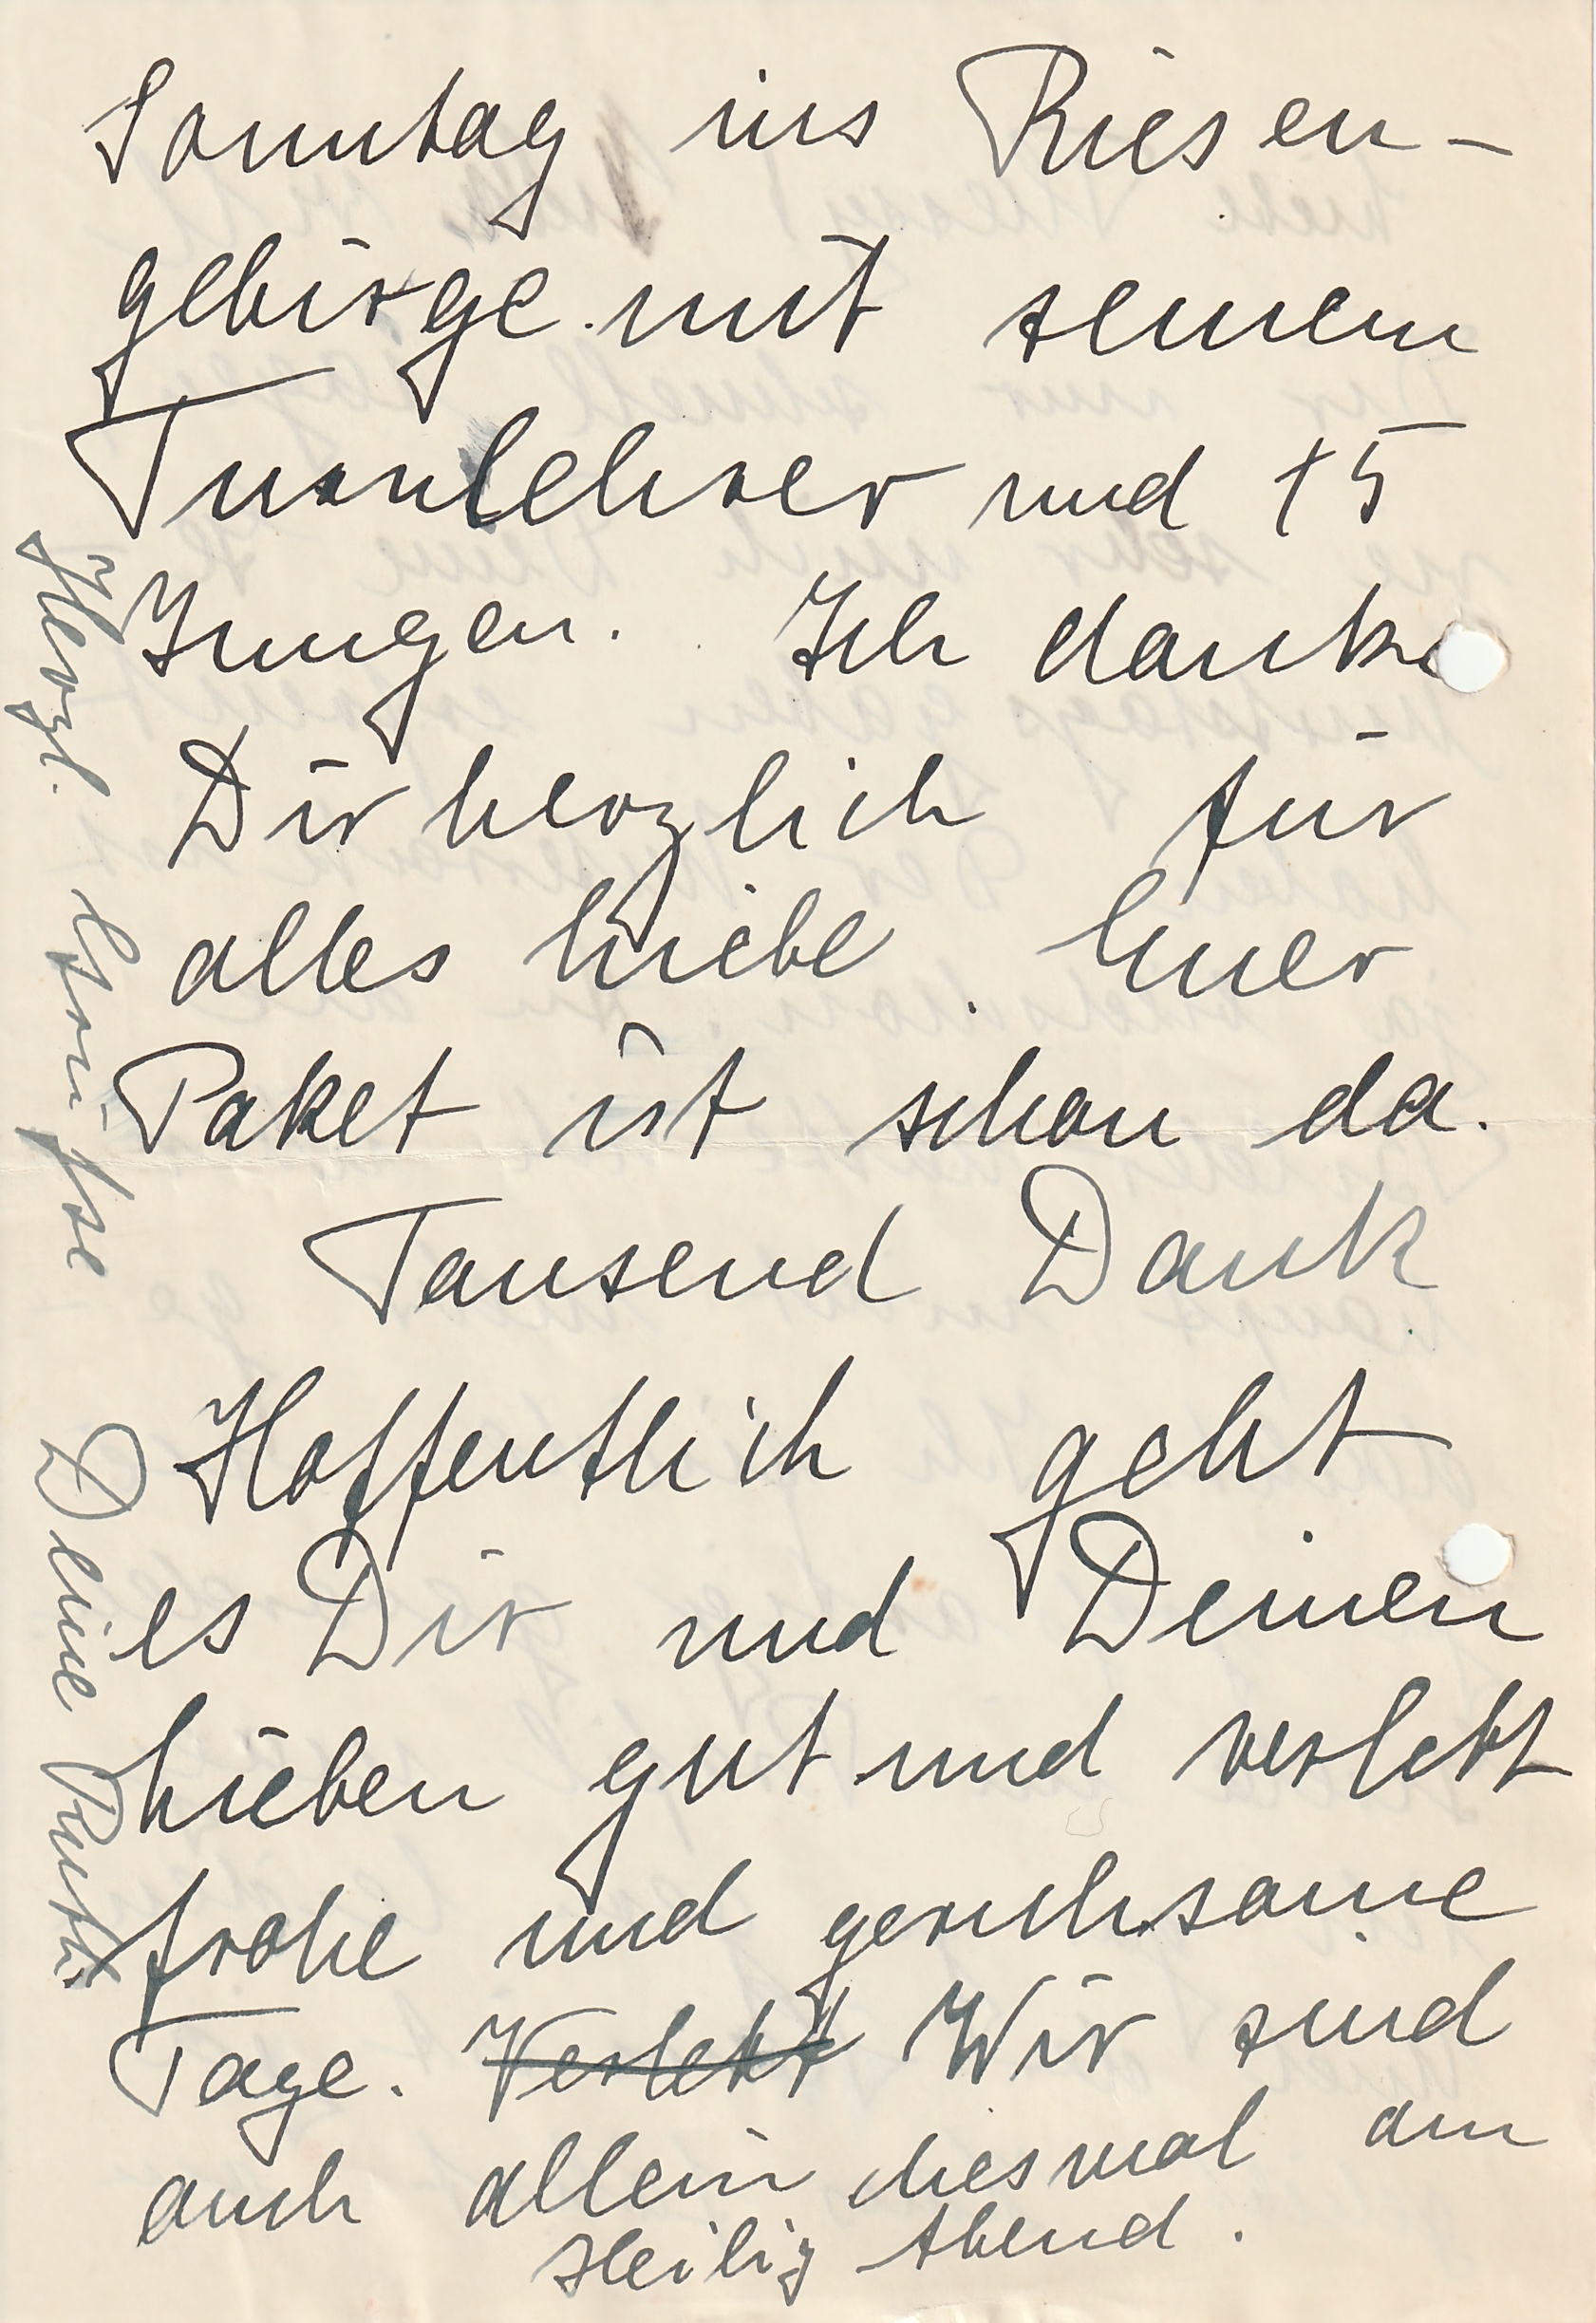 Sonntag ins Riesen-
gebirge mit seinem
Turnlehrer und 15
Jungen. Ich danke
Dir herzlich für
alles Liebe. Euer
Paket ist schon da.
Tausend Dank
Hoffentlich geht
es Dir und Deinen
Lieben gut und verlebt
frohe und geruhsame
Tage. Verlebt Wir sind
auch allein diesmal am
Heilig Abend.
Herzl. Grüße Deine Ruth.